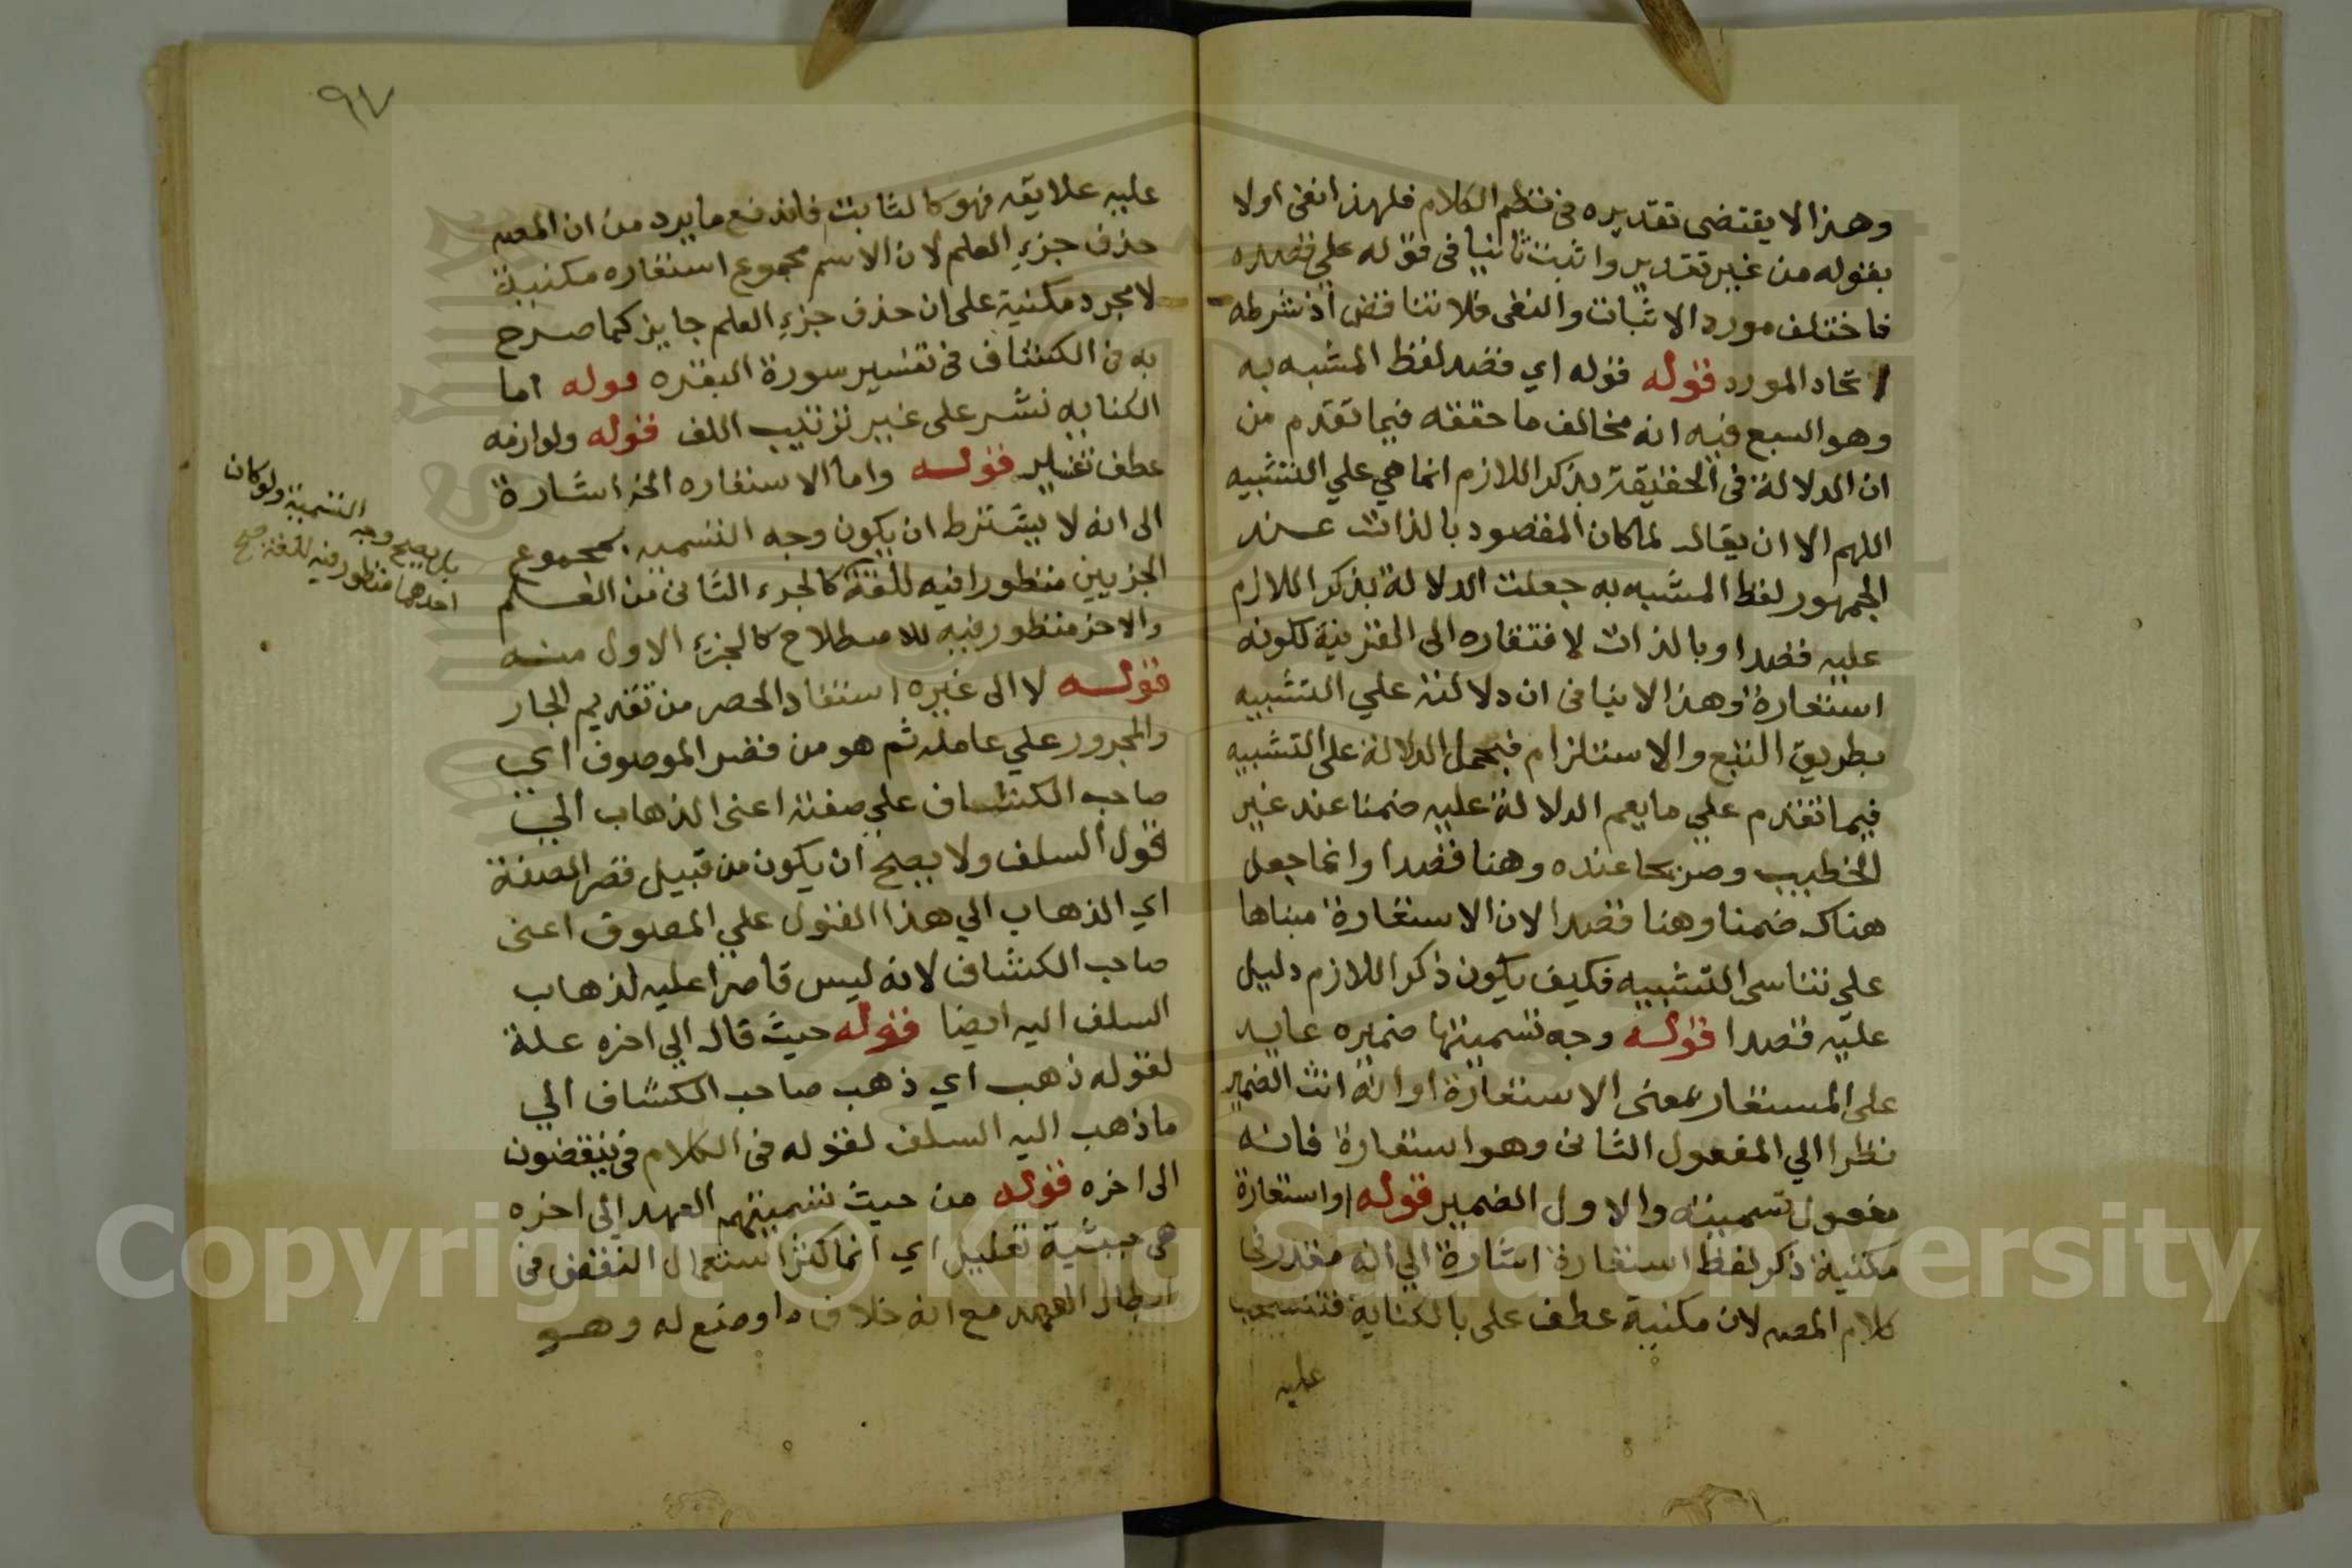 وهذا لا يقتضى تقديره فى نظم الكلام فلهذا نفى اولا
بقوله من غير تقدير واثبت ثانيا فى قوله علي قصده
فاختلف مورد الاثبات والنفى فلا تناقض اذ شرطه
اتحاد المورد قوله قوله اي قصد لفظ المشبه به
وهو السبع فيه انه مخالف ما حققه فيما تقدم من
ان الدلالة فى الحقيقة بذكر اللازم انما هي علي التشبيه
اللهم الا ان يقال لما كان المقصود بالذات عند
الجمهور لفظ المشبه به جعلت الدلالة بذكر اللازم
عليه قصدا وبالذات لافتقاره الى القرينة لكونه
استعارة وهذا لا ينافى ان دلالته علي التشبيه
بطريق التبع والاستلزام فيحمل الدلالة على التشبيه
فيما تقدم علي ما يعم الدلالة عليه ضمنا عند غير
الخطيب وصريحا عنده وهنا قصدا وانما جعل
هناك ضمنا وهنا قصدا لان الاستعارة مبناها
علي تناسى التشبيه فكيف يكون ذكر اللازم دليل
عليه قصدا قوله وجه تسميتها ضميره عايد
على المستعار بمعنى الاستعارة او انه انث الضمير
نظرا الي المفعول الثانى وهو استعارة فانه
مفعول تسميته والاول الضمير قوله او استعارة
مكنية ذكر لفظ استعارة اشارة الي انه مقدر فى
كلام المصه لان مكنية عطف على بالكناية فتنسحب
عليه
٩٧
عليه علايقه فهو كالثابت فاندفع ما يرد من ان المصه
حذف جزء العلم لان الاسم مجموع استعاره مكنية
لا مجرد مكنية على ان حذف جزء العلم جايز كما صرح
به فى الكشاف فى تفسير سورة البقره قوله اما
الكنايه نشر على غير ترتيب اللف قوله ولوازمه
عطف تفسير قوله واما الاستعاره الخ اشارة
الى انه لا يشترط ان يكون وجه التسميه بمجموع
الجزيين منظورا فيه للغة كالجزء الثانى من العلم
والاخر منظور فيه للاصطلاح كالجزء الاول منه
قوله لا الى غيره استفاد الحصر من تقديم الجار
والمجرور علي عامله ثم هو من قصر الموصوف اي
صاحب الكشاف علي صفته اعنى الذهاب الي
قول السلف ولا يصح ان يكون من قبيل قصر الصفة
اي الذهاب الي هذا القول علي الموصوف اعنى
صاحب الكشاف لانه ليس قاصرا عليه لذهاب
السلف اليه ايضا قوله حيث قال الي اخره علة
لقوله ذهب اي ذهب صاحب الكشاف الي
ما ذهب اليه السلف لقوله فى الكلام فى ينقضون
الى اخره قوله من حيث تسميتهم العهد الى اخره
هى حيثية تعليل اي انما كثر استعمال النقض فى
ابطال العهد مع انه خلاف ما وضع له وهو
بل يصح وجه التسمية ولو كان
احدهما منظور فيه للغة صح
Copyright © King Saud University